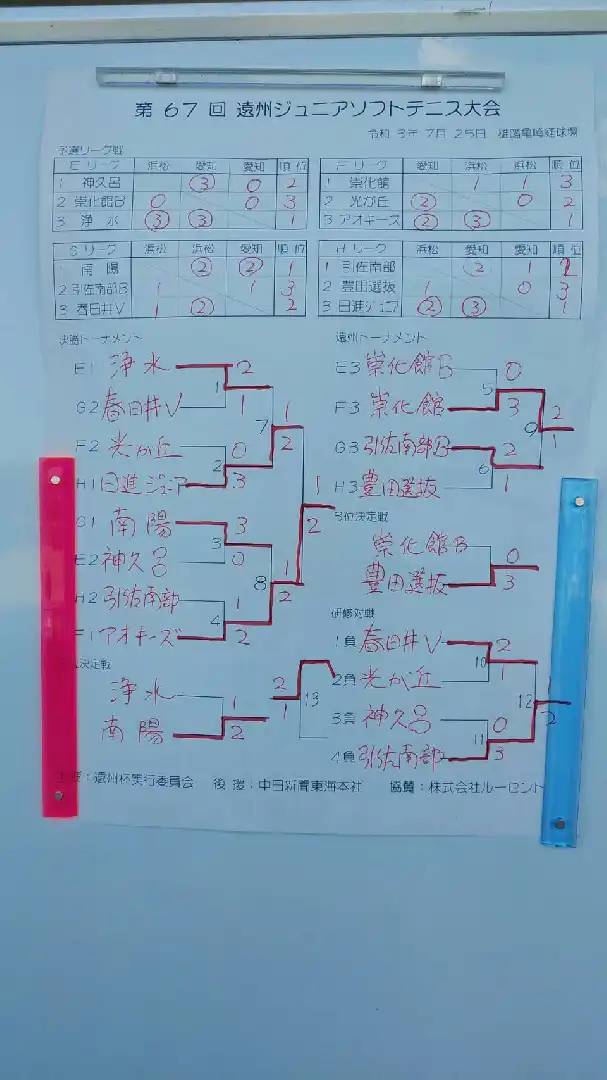 第 67 回 遠州ジュニアソフトテニス大会
令和 3年 7月 25日 雄踏亀崎庭球場
予選リーグ戦
E リーグ 浜松 愛知 愛知 順 位
1 神久呂 ③ 0 2
2 崇化館B 0 0 3
3 浄 水 ③ ③ 1
F リーグ 愛知 浜松 浜松 順 位
1 崇化館 1 1 3
2 光が丘 ② 0 2
3 アオキーズ ② ③ 1
G リーグ 浜松 浜松 愛知 順 位
1 南 陽 ② ② 1
2 引佐南部B 1 1 3
3 春日井V 1 ② 2
H リーグ 浜松 愛知 愛知 順 位
1 引佐南部 ② 1 2
2 豊田選抜 1 0 3
3 日進ジュニア ② ③ 1
決勝トーナメント
E1 浄水 2
1
G2 春日井V 1
7 1 2
F2 光が丘 0
2
H1 日進ジュニア 3
1 2
G1 南陽 3
3
E2 神久呂 0
8 1 2
H2 引佐南部 1
4
F1 アオキーズ 2
決定戦
浄水 1
南陽 2
2 1 13
遠州トーナメント
E3 崇化館B 0
5
F3 崇化館 3
9 2 1
G3 引佐南部B 2
6
H3 豊田選抜 1
3位決定戦
崇化館B 0
豊田選抜 3
研修対戦
1負 春日井V 2
10
2負 光が丘 1
12 1 2
3負 神久呂 0
11
4負 引佐南部 3
：遠州杯実行委員会 後 援：中日新聞東海本社 協賛：株式会社ルーセント